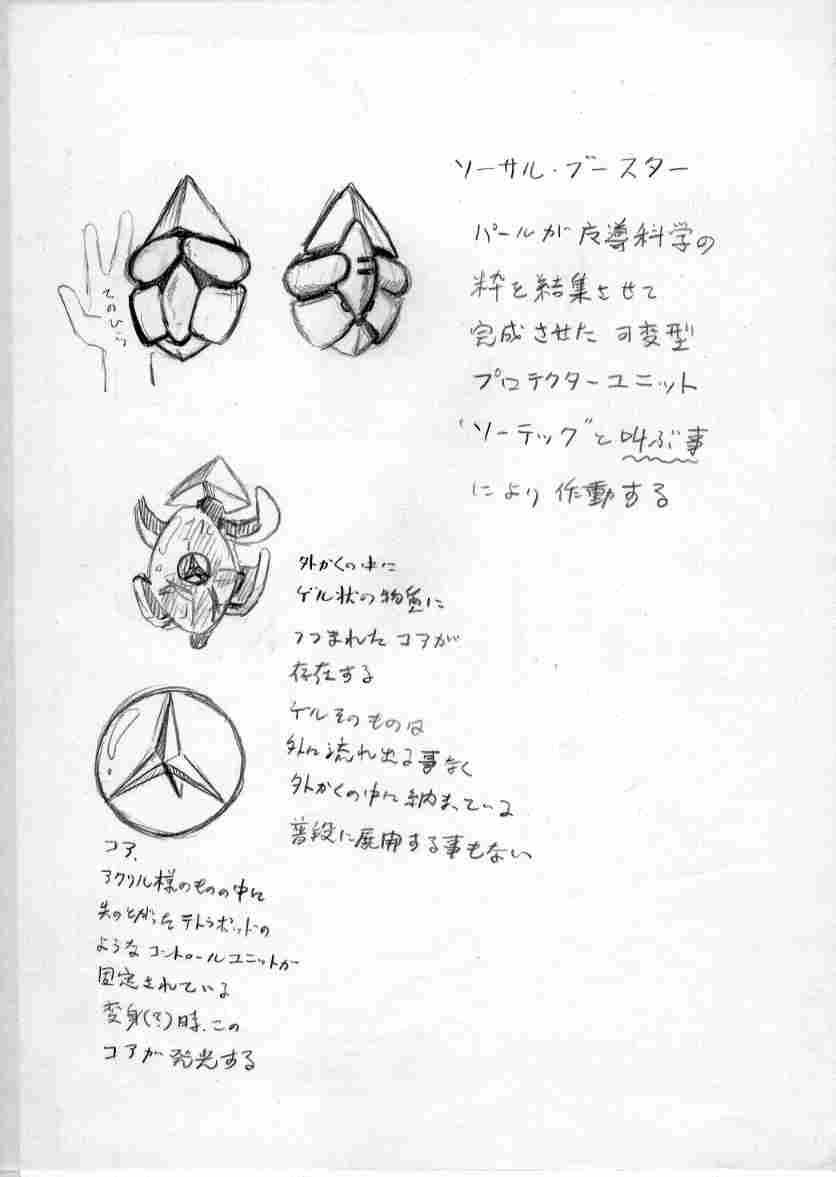 ソーサル・ブースター
パールが反導科学の
粋を結集させて
完成させた可変型
プロテクターユニット
"ソーテック"と叫ぶ事
により作動する
てのひら
外かくの中に
ゲル状の物質に
つつまれたコアが
存在する
ゲルそのものは
外に流れ出る事なく
外かくの中に納まっている
普段に展開する事もない
コア.
アクリル様のものの中に
先のとがったテトラポッドの
ようなコントロールユニットが
固定されている
変身(?)時、この
コアが発光する